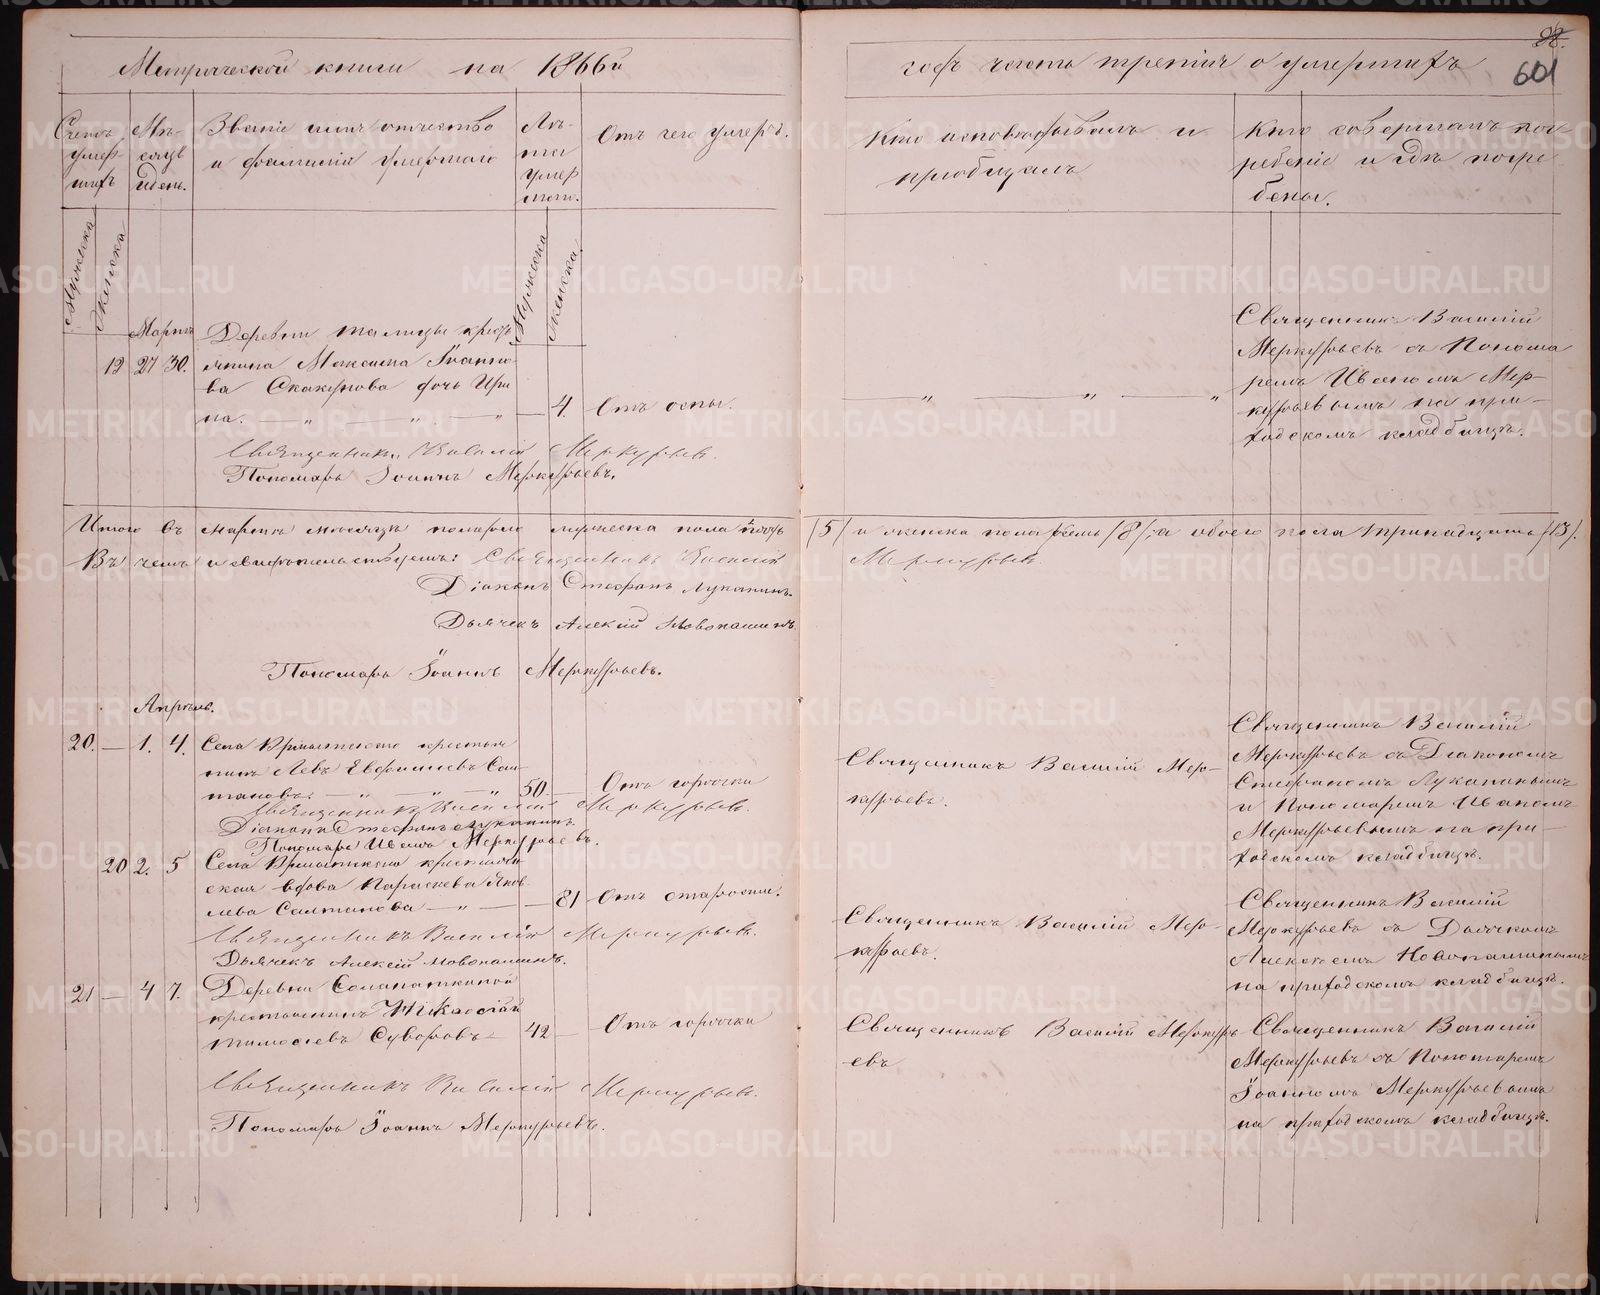 Метрической книги на 1866й
годъ часть третія о умершихъ
88.
601
Счетъ умер-шихъ
Мѣ-сяцъ и день.
Званіе имя отчество
и фамилія умершаго
Лѣ-та умер шаго.
Отъ чего умеръ.
Кто исповѣдывалъ и
пріобщалъ
Кто совершалъ пог-
ребеніе и гдѣ погре
бены.
Мужеска
Женска
Мужеска
Женска
Мартъ
Деревни Талицы крест
12 27 30. янина Максима Іоанно-
ва Скакунова дочь Ири
на. — 4 Отъ оспы.
Священникъ Василій Меркурьев.
Пономарь Іоаннъ Меркурьевъ.
Священникъ Василій
Меркурьевъ съ Понома
ремъ Иваномъ Мер-
курьевымъ на при-
ходскомъ кладбищѣ.
Итого въ мартѣ мѣсяцѣ померло мужеска пола пять /5/ и женска пола /8/, а обоего пола тринадцать /13/.
Въ чемъ и свидѣтельствуемъ: Священникъ Василій Меркурьев.
Діаконъ Стефанъ Луканинъ.
Дьячекъ Алексій Новопашинъ
Пономарь Іоаннъ Меркурьевъ.
Апрѣль.
20. — 1. 4. Села крестья
нинъ Левъ Евфимиевъ Сал
тановъ. 50. — Отъ горячки
Священникъ Василій Меркурьев.
Діаконъ Стефанъ Луканинъ.
Пономарь Иванъ Меркурьевъ.
Священникъ Василій Мер-
курьевъ.
Священникъ Василій
Меркурьевъ съ Діакономъ
Стефаномъ Луканинымъ
и Пономаремъ Иваномъ
Меркурьевымъ на при-
ходскомъ кладбищѣ.
20 2. 5 Села крестьян
ская вдова Параскева Яков
лева Салтанова — 81 Отъ старости.
Священникъ Василій Меркурьев.
Дьячекъ Алексій Новопашинъ.
Священникъ Василій Мер-
курьевъ.
Священникъ Василій
Меркурьевъ съ Дьячкомъ
Алексѣемъ Новопашинымъ
на приходскомъ кладбищѣ.
21 — 4 7. Деревни
крестьянинъ
Тимофеевъ Суворовъ — 42 Отъ горячки
Священникъ Василій Меркурьев.
Пономарь Іоаннъ Меркурьевъ.
Священникъ Василій Меркурь
евъ
Священникъ Василій
Меркурьевъ съ Пономаремъ
Іоанномъ Меркурьевымъ
на приходскомъ кладбищѣ.
METRIKI.GASO-URAL.RU